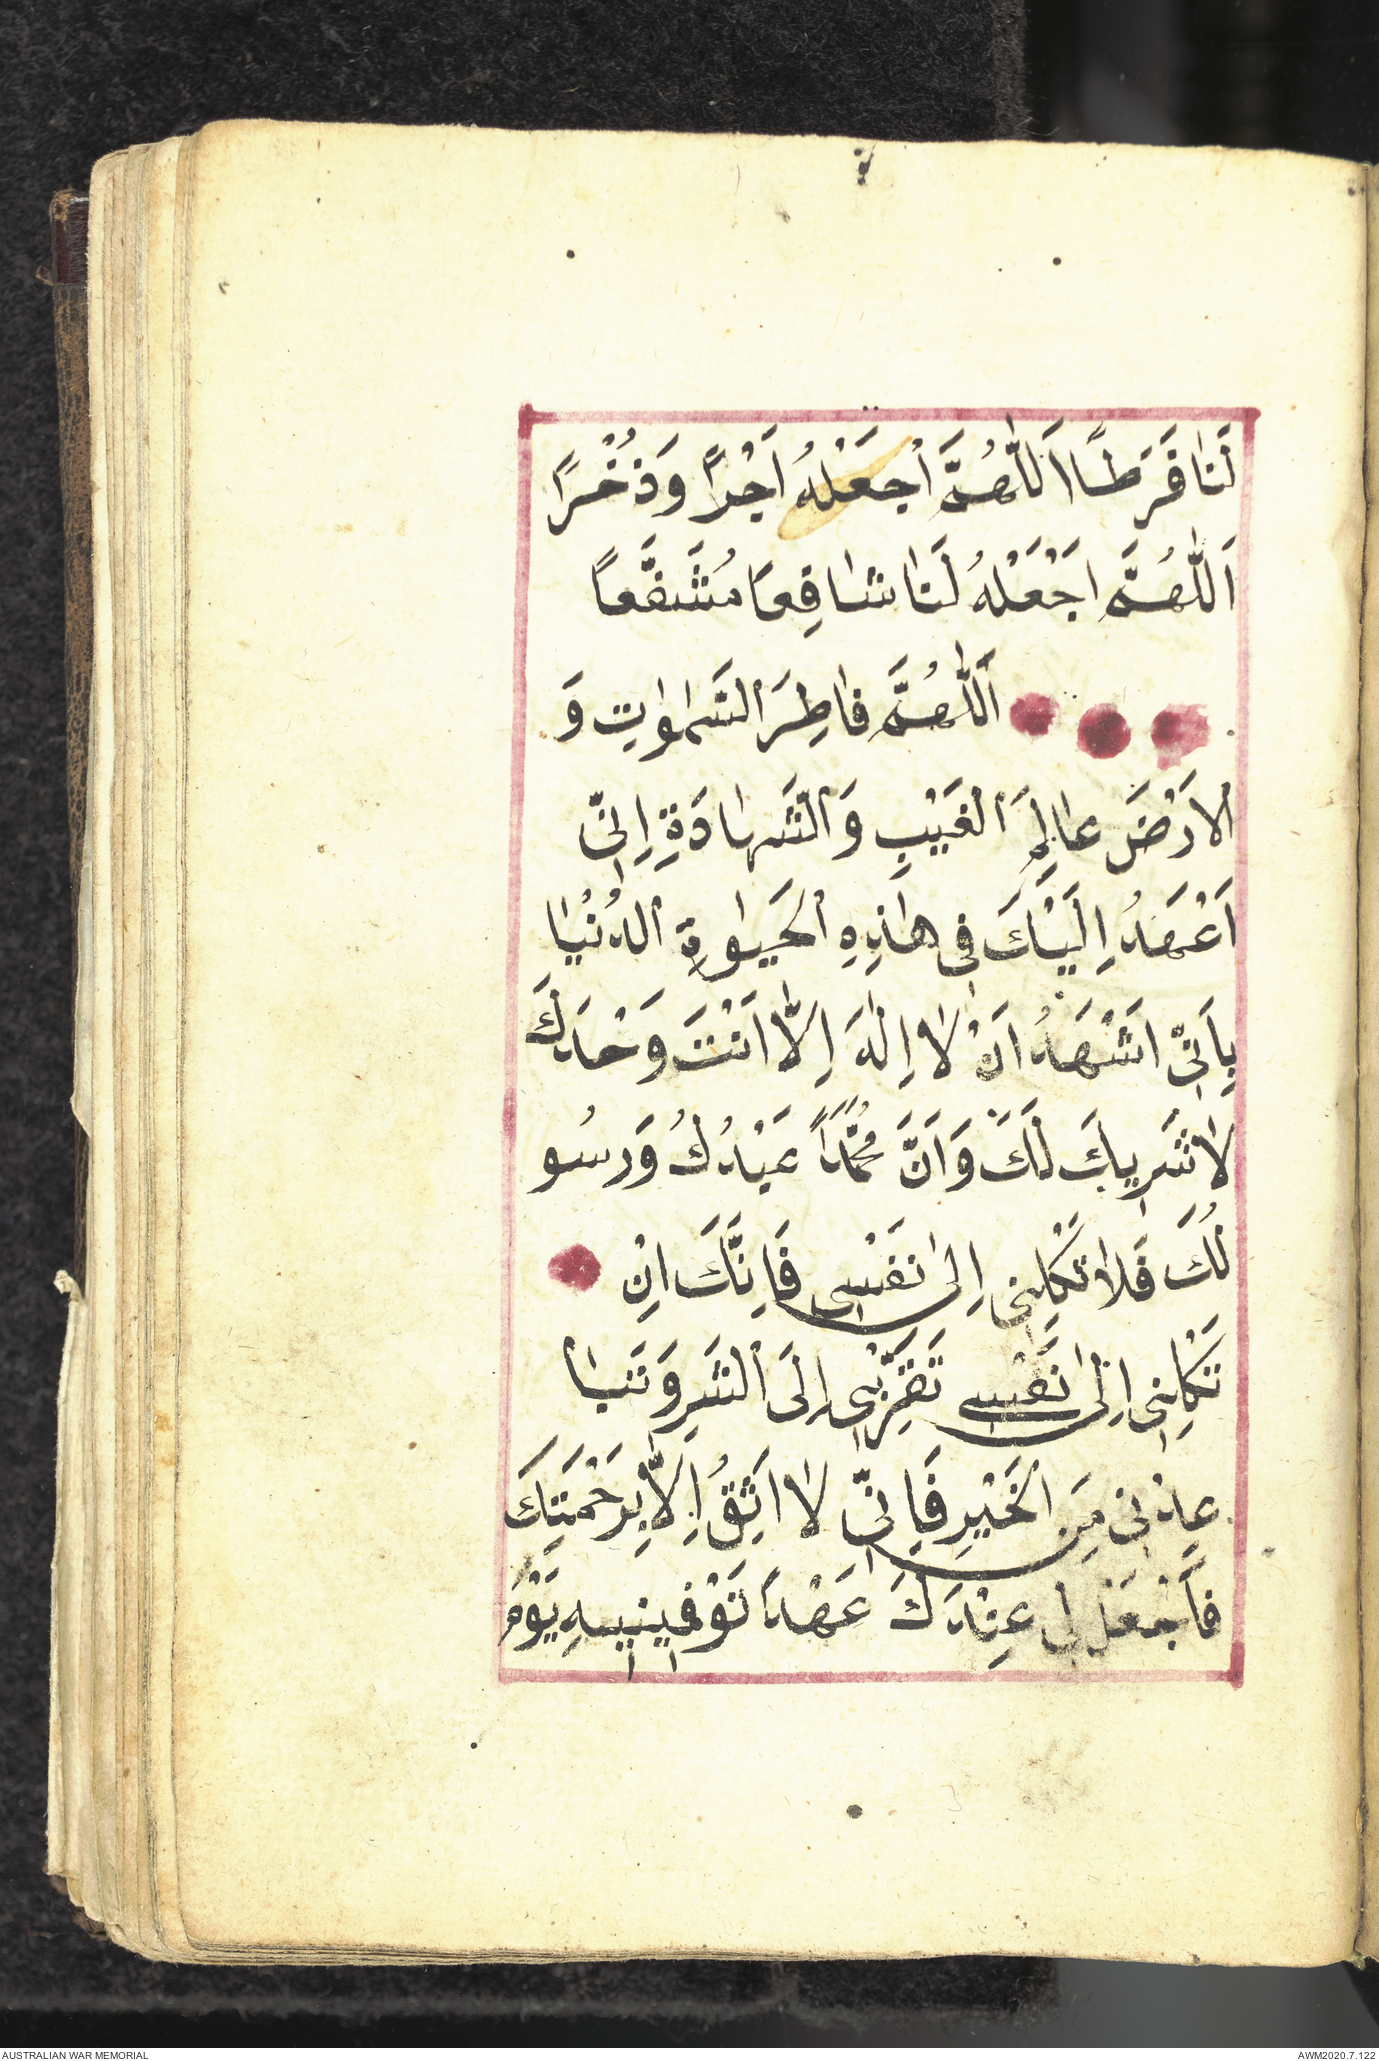 لَنَا فَرَطًا اَللّٰهُمَّ اجْعَلْهُ اَجْرًا وَذُخْرًا
اَللّٰهُمَّ اجْعَلْهُ لَنَا شَافِعًا مُشَفَّعًا
اَللّٰهُمَّ فَاطِرَ السَّمٰوَاتِ وَ
الْاَرْضَ عَالِمَ الْغَيْبِ وَالشَّهَادَةِ اِنِّى
اَعْهَدُ اِلَيْكَ فِى هٰذِهِ الْحَيٰوةِ الدُّنْيَا
بِاَنِّى اَشْهَدُ اَنْ لَا اِلٰهَ اِلَّا اَنْتَ وَحْدَكَ
لَا شَرِيكَ لَكَ وَاَنَّ مُحَمَّدًا عَبْدُكَ وَرَسُو
لُكَ فَلَا تَكِلْنِى اِلٰى نَفْسِى فَاِنَّكَ اِنْ
تَكِلْنِى اِلٰى نَفْسِى تُقَرِّبْنِى اِلَى الشَّرِ وَتَبَا
عِدْنِى مِنَ الْخَيْرِ فَاِنِّى لَا اَثِقُ اِلَّا بِرَحْمَتِكَ
فَاجْعَلْ لِى عِنْدَكَ عَهْدًا تَوْفِينِيهِ يَوْمَ
AUSTRALIAN WAR MEMORIAL
AWM2020.7.122